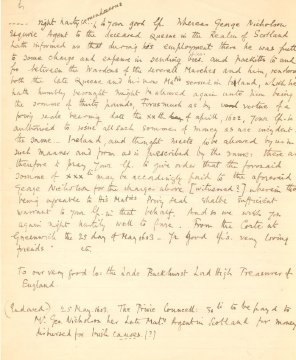 6
right harty commendacons to your good Lp. Wheras George Nicholson
Esquire Agent to the deceased Queene in the Realm of Scotland
hath informed us that during his employment there he was putt
to some charge and expence in sending and
for between the Wardens of the severall Marches and him,
both the late Queene and his now Maties service in Ireland, which he
hath humbly besought might be allowed again unto him being
the somme of thirty pounds, Forasmuch as by vertue of a
privy seale bearing date the xxth day of aprill 1602, your Lp. is
authorised to issue all such sommes of money as are incydent
the same Ireland, and thought meete to be allowed by us in
such manner and form as is prescribed by the same: these are
therfore to pray your Lp. to give order that the foresaid
somme of xxxli may be accordingly paid to the aforesaid
George Nicholson for the charges above [witnessed?] wherein this
being agreable to his Maties Privy Seal shalbe sufficient
warrant to your Lp. in that behalf. And so we wish you
again right hartily well to fare. From the Corte at
Greenwich the 25 day of May 1603. Yr Good Lps. very loving
friends. etc.
To our very good lo: the Lorde Buckhurst Lord High Treasurer of
England.
(Indorsed) 25 May, 1603. The Privie Councell: 30li to be payd to
Mr Geo. Nicholson her late Maties Agent in Scotland for money
disbursed for Irish causes (?)